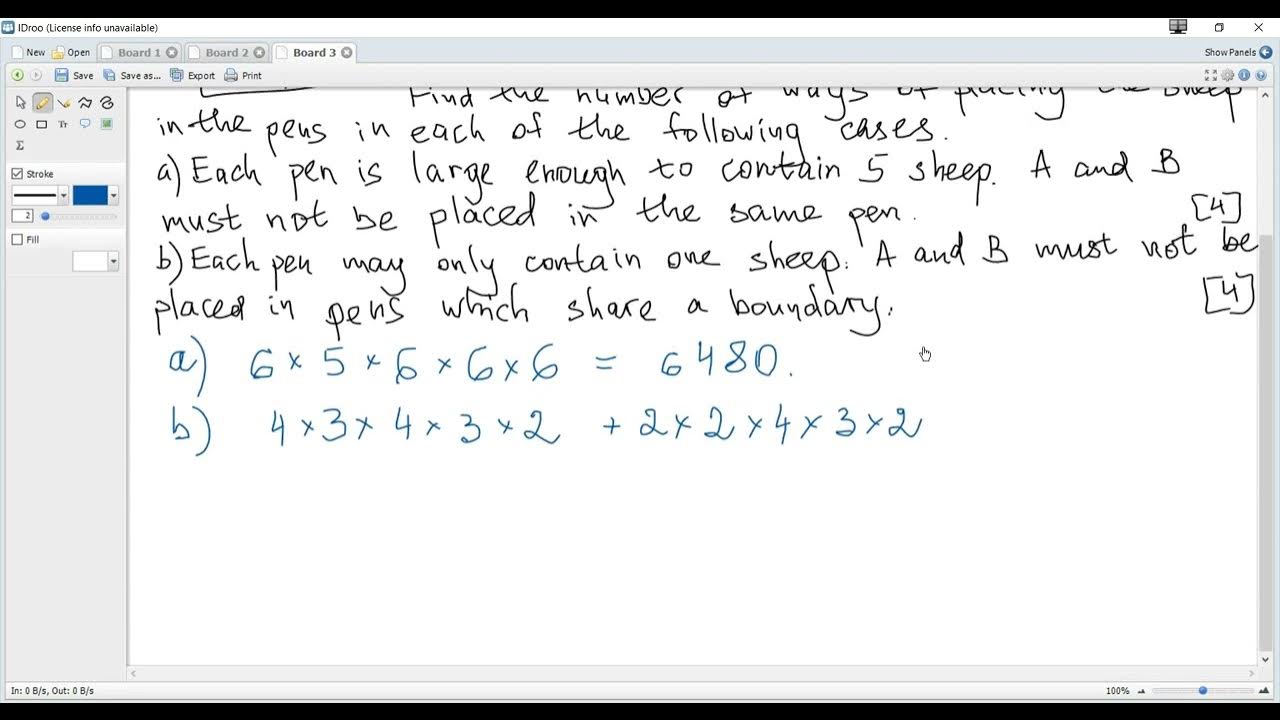 IDroo (License info unavailable)
New Open Board 1 Board 2 Board 3 Show Panels
Save Save as... Export Print
Find the number of ways of placing the sheep
in the pens in each of the following cases.
a) Each pen is large enough to contain 5 sheep. A and B
must not be placed in the same pen. [4]
b) Each pen may only contain one sheep. A and B must not be
placed in pens which share a boundary. [4]
a) 6 × 5 × 6 × 6 × 6 = 6480.
b) 4 × 3 × 4 × 3 × 2 + 2 × 2 × 4 × 3 × 2
Tr
Σ
Stroke
2
Fill
In: 0 B/s, Out: 0 B/s 100%